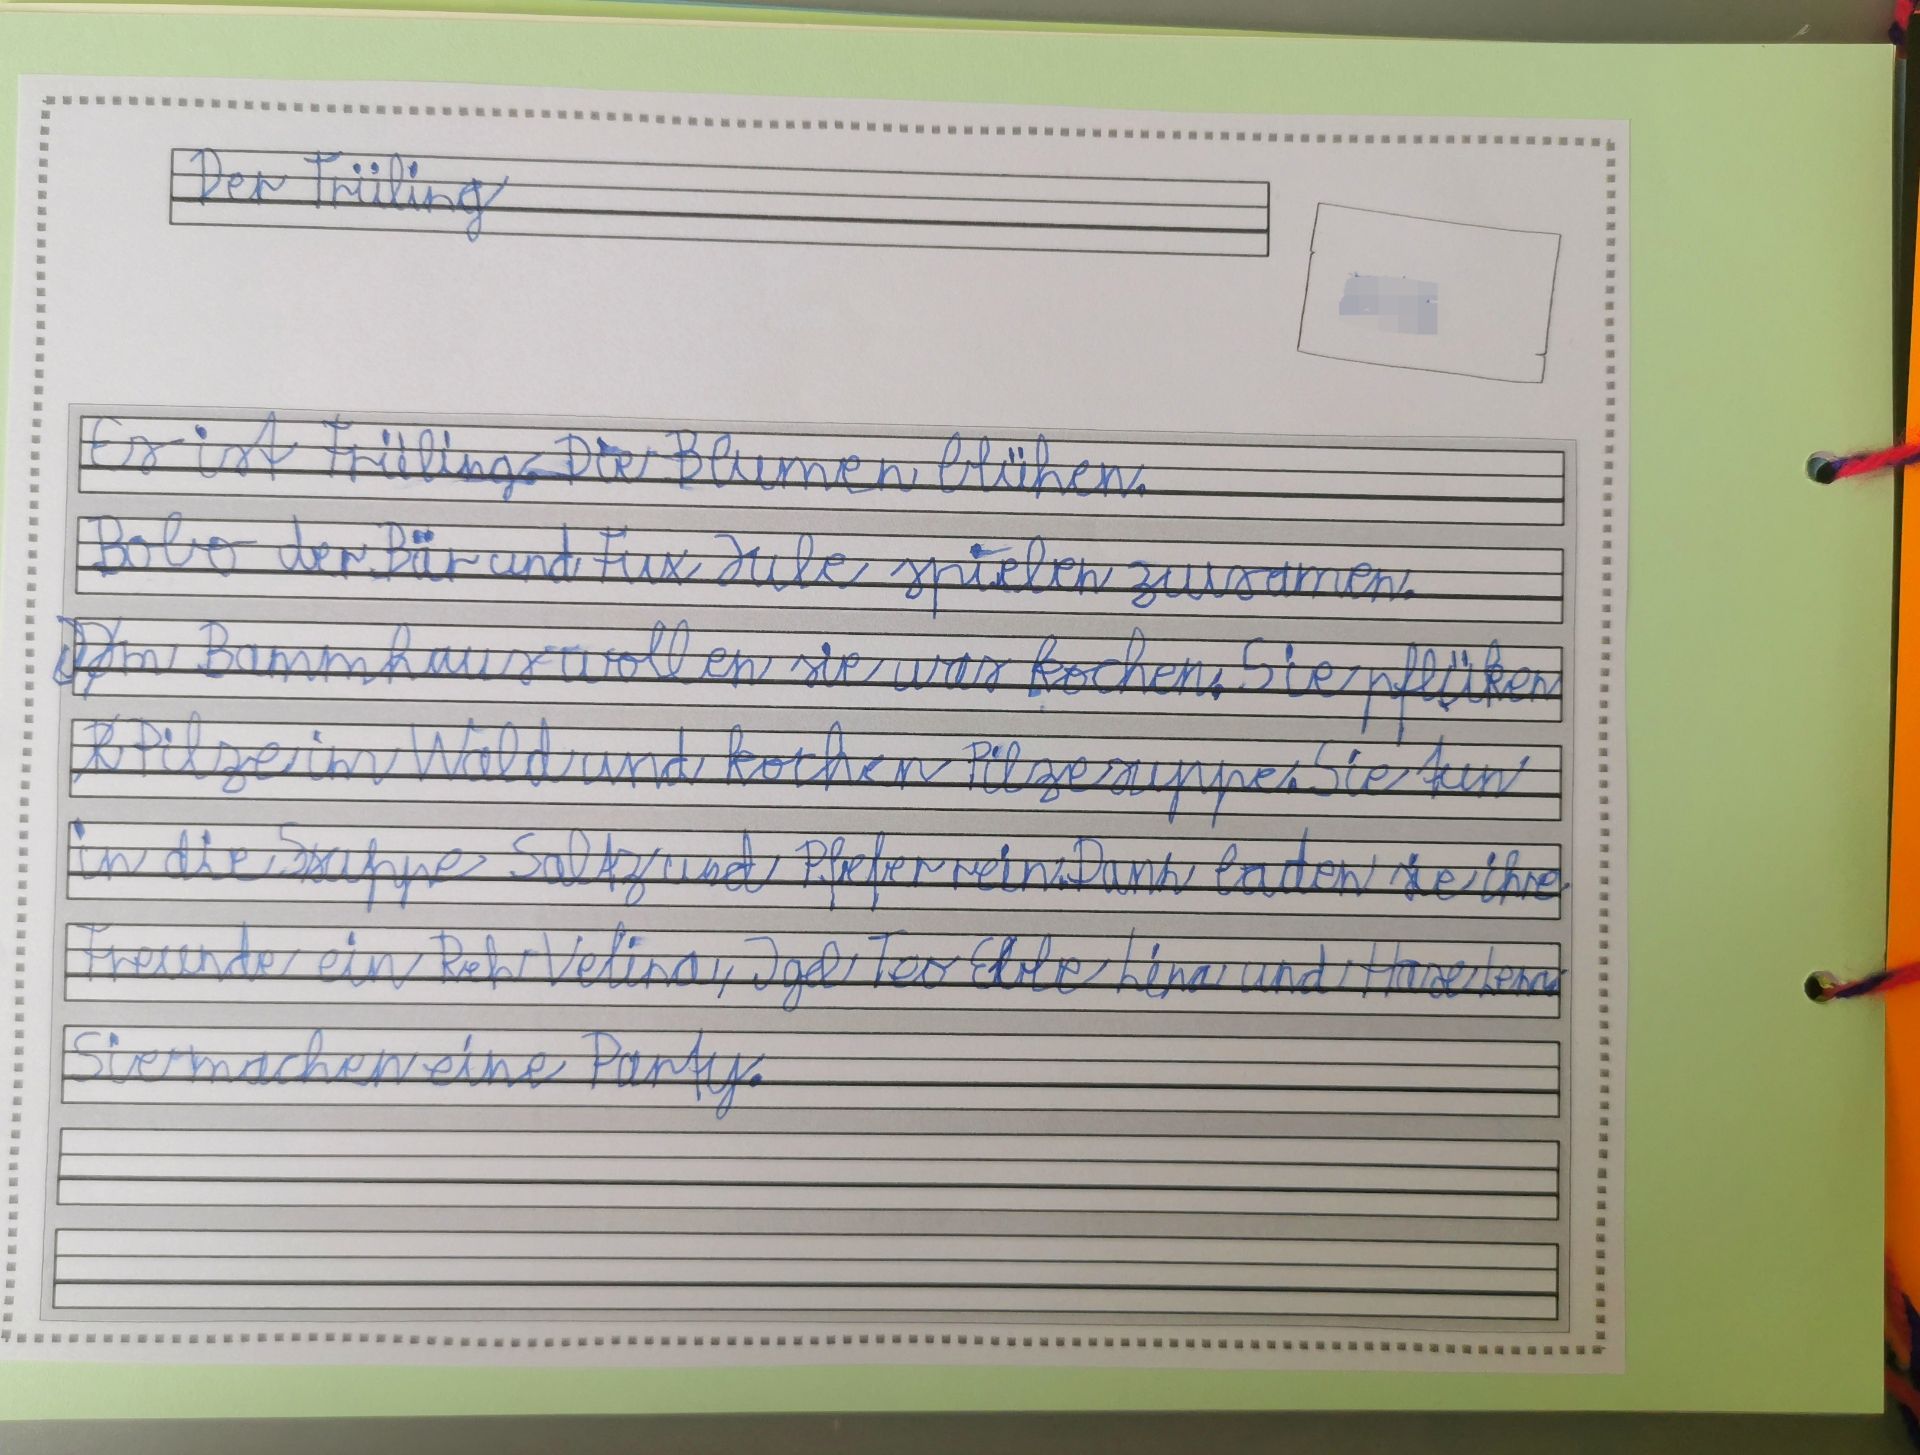 Der Früling
Es ist Früling. Die Blumen blühen.
Bobo der Bär und Fux Jule spielen zusamen.
Im Bammhaus wollen sie was kochen. Sie pflüken
Pilze im Wald und kochen Pilzesuppe. Sie tun
in die Suppe Saltz und Pfefer rein. Dann laden sie ihre
Freunde ein Reh Velina, Igel Teo Eule Lina und Hase Lena
Sie machen eine Party.